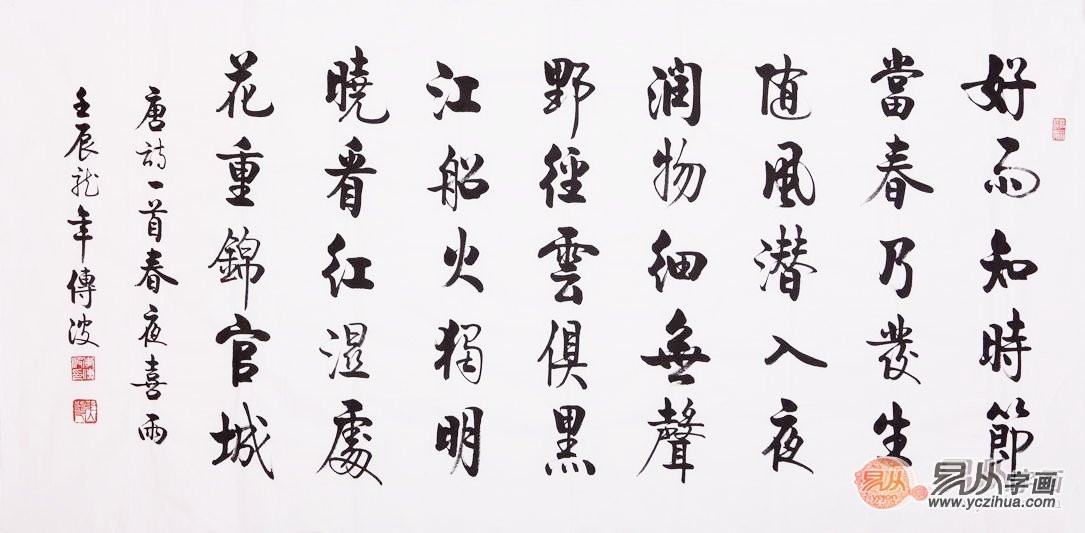 好雨知時節
當春乃發生
随風潜入夜
潤物細無聲
野徑雲俱黑
江船火獨明
曉看紅濕處
花重錦官城
唐詩一首春夜喜雨
壬辰龍年傳波
易从
yczihua
易从字画
www.yczihua.com